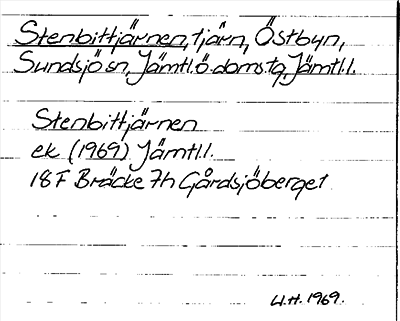 Stenbittjärnen, tjärn, Östbyn,
Sundsjö sn, Jämtl. ö. doms. tg, Jämtl. l.
Stenbittjärnen
ek (1969) Jämtl. l.
18 F Bräcke 7h Gårdsjöberget
U.H. 1969.